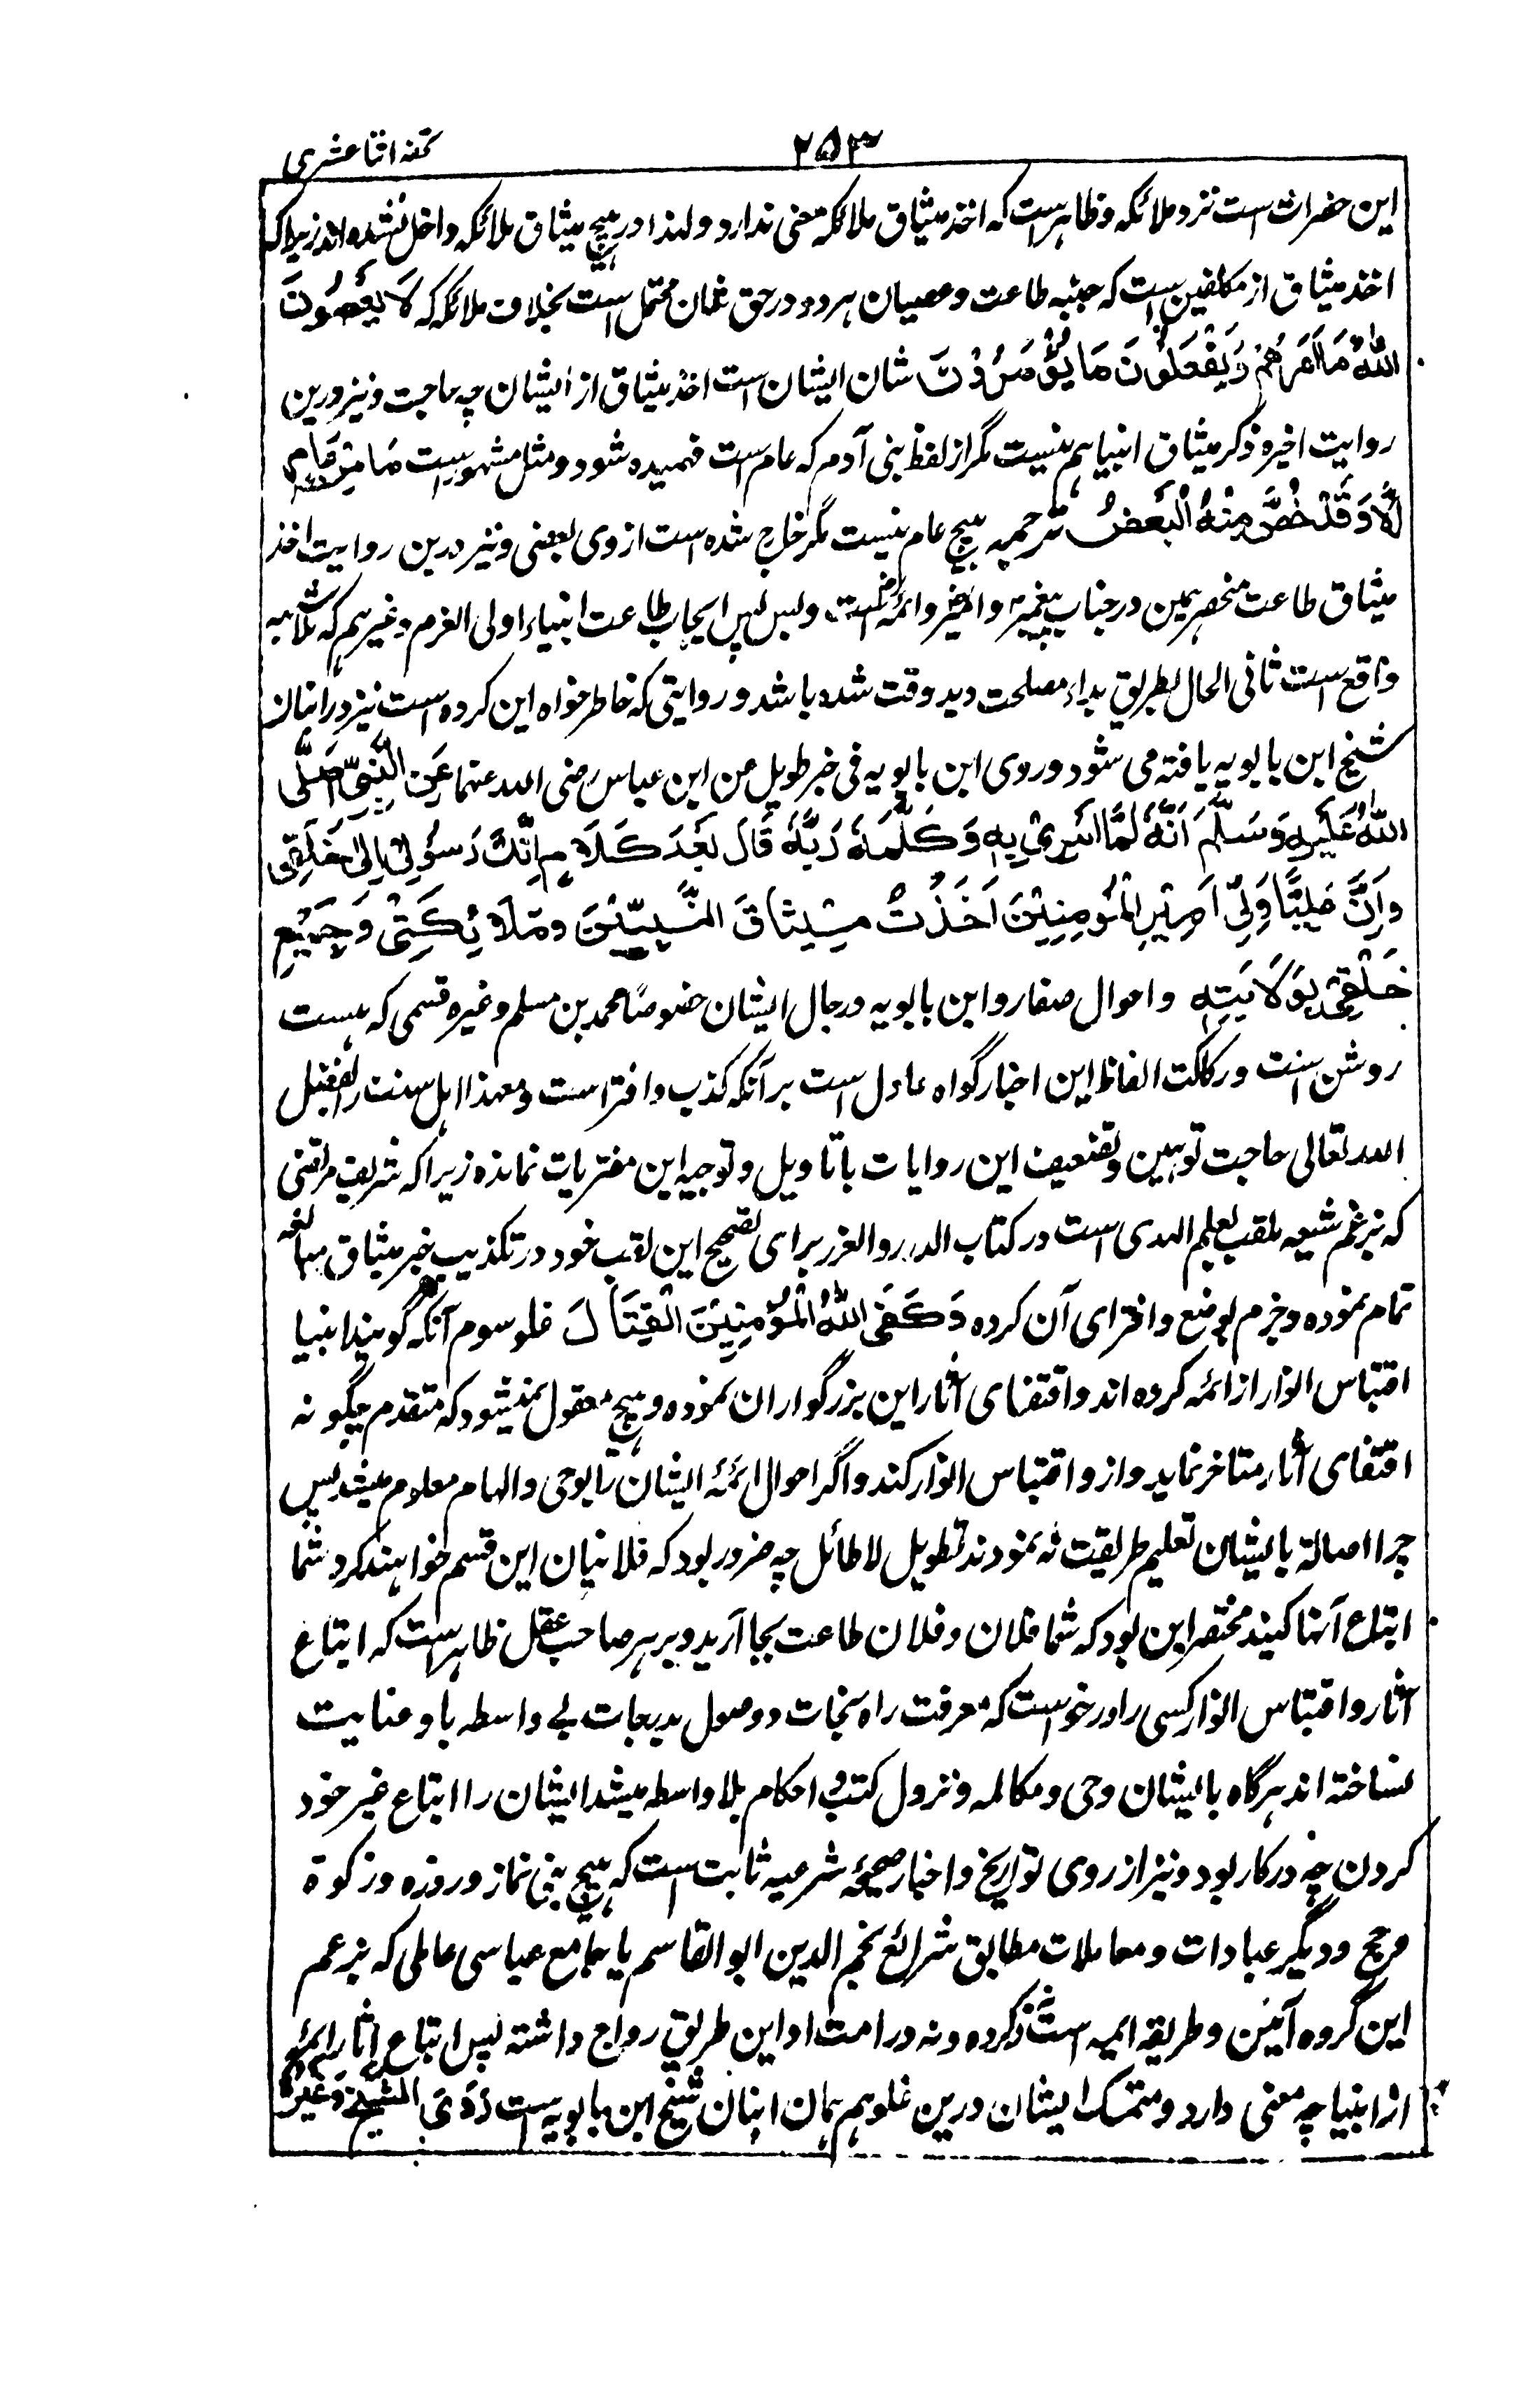 ۲۵۳
تحفه اثنا عشری
این حضرات است نزد ملائکه و ظاهر است که اخذ میثاق ملائکه معنی ندارد و لهذا در هیچ میثاق ملائکه داخل نشده اند زیرا که
اخذ میثاق از مکلفین است که جنبه طاعت و عصیان هر دو در حق شان محتمل است بخلاف ملائکه که لَا یَعْصُوْنَ
اللّٰهَ مَا اَمَرَهُمْ وَیَفْعَلُوْنَ مَا یُؤْمَرُوْنَ شان ایشان است اخذ میثاق از ایشان چه حاجت و نیز درین
روایت اخیره ذکر میثاق انبیا هم نیست مگر از لفظ بنی آدم که عام است فهمیده شود و مثل مشهور است مَا مِنْ عَامٍ
اِلَّا وَقَدْ خُصَّ مِنْهُ الْبَعْضُ ترجمه هیچ عام نیست مگر خارج شده است از وی بعضی و نیز درین روایت اخذ
میثاق طاعت منحصر همین در جناب پیغمبر و امیر و ائمه است و بس پس ایجاب طاعت انبیاء اولی العزم و غیرهم که بلا شبهه
واقع است ثانی الحال بطریق بداء مصلحت دید وقت شده باشد و روایتی که خاطر خواه این گروه است نیز در انبان
شیخ ابن بابویه یافته می شود و روی ابن بابویه فی خبر طویل عن ابن عباس رضی الله عنهما عَنِ النَّبِیِّ صَلَّی
اللّٰهُ عَلَیْهِ وَسَلَّمَ اَنَّهٗ لَمَّا اُسْرِیَ بِهٖ وَکَلَّمَهٗ رَبُّهٗ قَالَ بَعْدَ کَلَامٍ اِنَّكَ رَسُوْلِیْ اِلٰی خَلْقِیْ
وَاَنَّ عَلِیًّا وَلِیُّ اَمِیْرِ الْمُؤْمِنِیْنَ اَخَذْتُ مِیْثَاقَ النَّبِیِّیْنَ وَمَلَائِکَتِیْ وَجَمِیْعِ
خَلْقِیْ بِوَلَایَتِهٖ و احوال صفار و ابن بابویه و رجال ایشان خصوصًا محمد بن مسلم و غیره قسمی که هست
روشن است و رکاکت الفاظ این اخبار گواه عادل است بر آنکه کذب و افترا است و معهذا اهل سنت را بفضل
الله تعالی حاجت توهین و تضعیف این روایات با تاویل و توجیه این مفتریات نمانده زیرا که شریف مرتضی
که بزعم شیعه ملقب بعلم الهدی است در کتاب الدرر و الغرر برای تصحیح این لقب خود در تکذیب خبر میثاق مبالغه
تمام نموده و جزم بوضع و افترای آن کرده وَکَفَی اللّٰهُ الْمُؤْمِنِیْنَ الْقِتَالَ غلو سوم آنکه گویند انبیا
اقتباس انوار از ائمه کرده اند و اقتفای آثار این بزرگواران نموده و هیچ معقول نمیشود که متقدم چگونه
اقتفای آثار متاخر نماید و از و اقتباس انوار کند و اگر احوال ائمه ایشان را بوحی و الهام معلوم میشد پس
چرا اصالة بایشان تعلیم طریقت نه نمودند تطویل لا طائل چه ضرور بود که فلانیان این قسم خواهند کرد شما
اتباع آنها کنید مختصر این بود که شما فلان و فلان طاعت بجا آرید و بر هر صاحب عقل ظاهر است که اتباع
آثار و اقتباس انوار کسی را درخور است که معرفت راه نجات و وصول بدرجات بے واسطه باو عنایت
نساخته اند هرگاه بایشان وحی و مکالمه و نزول کتب و احکام بلا واسطه میشد ایشان را اتباع غیر خود
کردن چه درکار بود و نیز از روی تواریخ و اخبار صحیحه شرعیه ثابت است که هیچ نبی نماز و روزه و زکوة
و حج و دیگر عبادات و معاملات مطابق شرائع نجم الدین ابو القاسم یا جامع عباسی عاملی که بزعم
این گروه آئین و طریقه ایمه است نکرده و نه در امت او این طریق رواج داشته پس اتباع آثار ائمه
از انبیا چه معنی دارد و متمسک ایشان درین غلو هم همان انبان شیخ ابن بابویه است رَوَی الشَّیْخُ وَغَیْرُهٗ